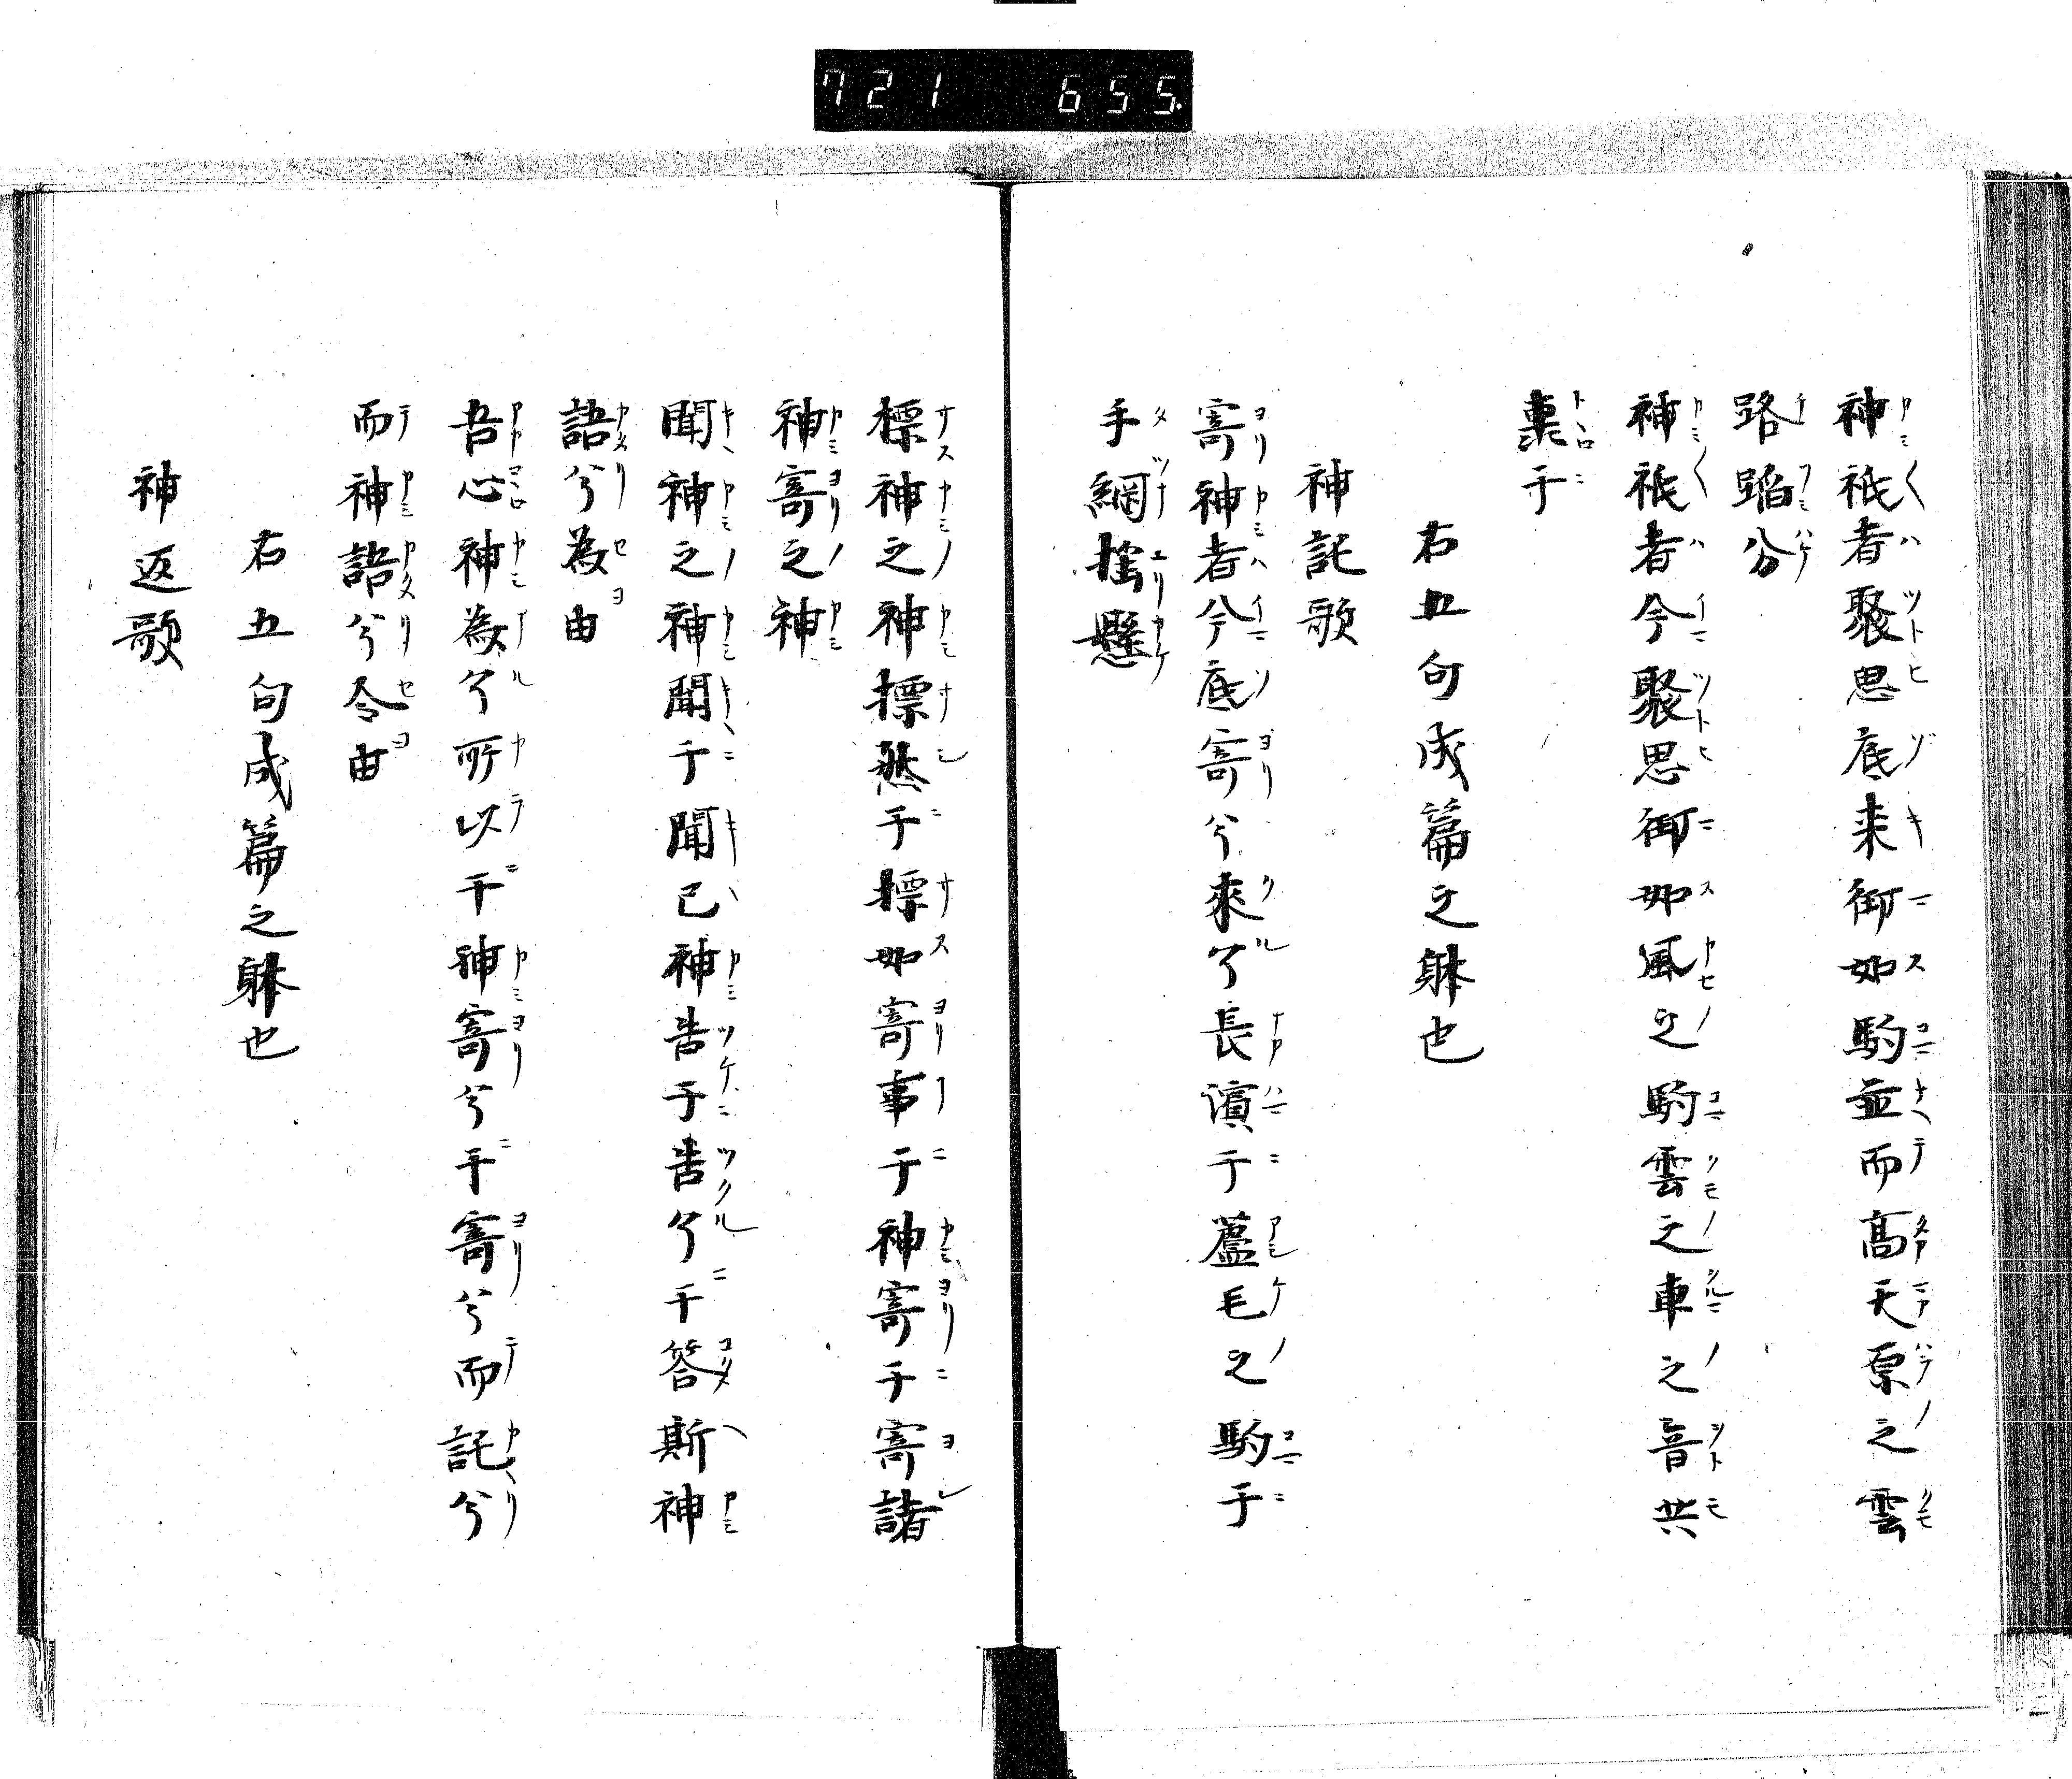 721 655
神祇者聚思底来御如駒並而高天原之雲
路蹈分
神祇者今聚思御如風之駒雲之車之音共
于
右五句成篇之躰也
神託歌
寄神者今底寄兮來了長濱于蘆毛之駒于
手綱搖懸
標神之神標然于標如寄事于神寄于寄諸
神寄之神
聞神之神聞于聞已神告于告了于答斯神
語兮為由
吾心神為了所以于神寄兮于寄兮而託兮
而神語兮令由
右五句成篇之躰也
神返歌